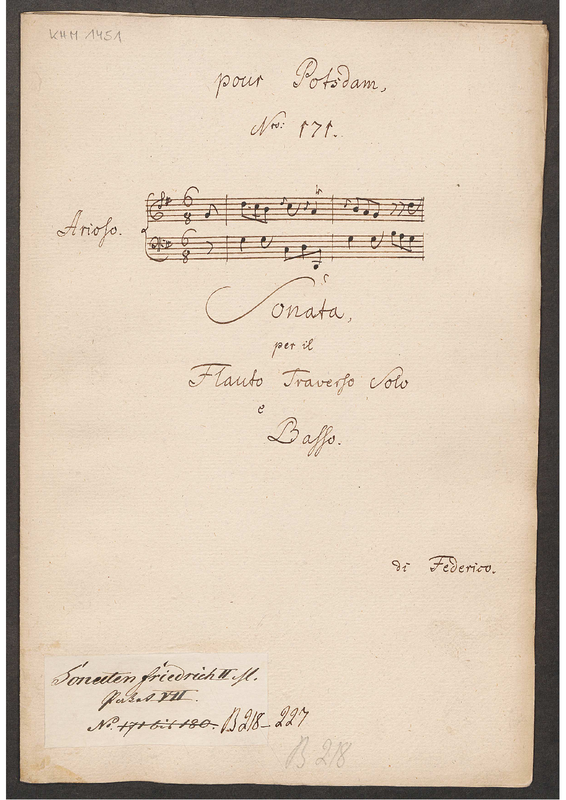 KHM 1451
pour Potsdam,
Nro: 171.
Arioso.
Sonata,
per il
Flauto Traverso Solo
e
Basso.
di Federico.
Sonaten Friedrich II
VII.
No. 171 bis 180. B 218–227
B 218